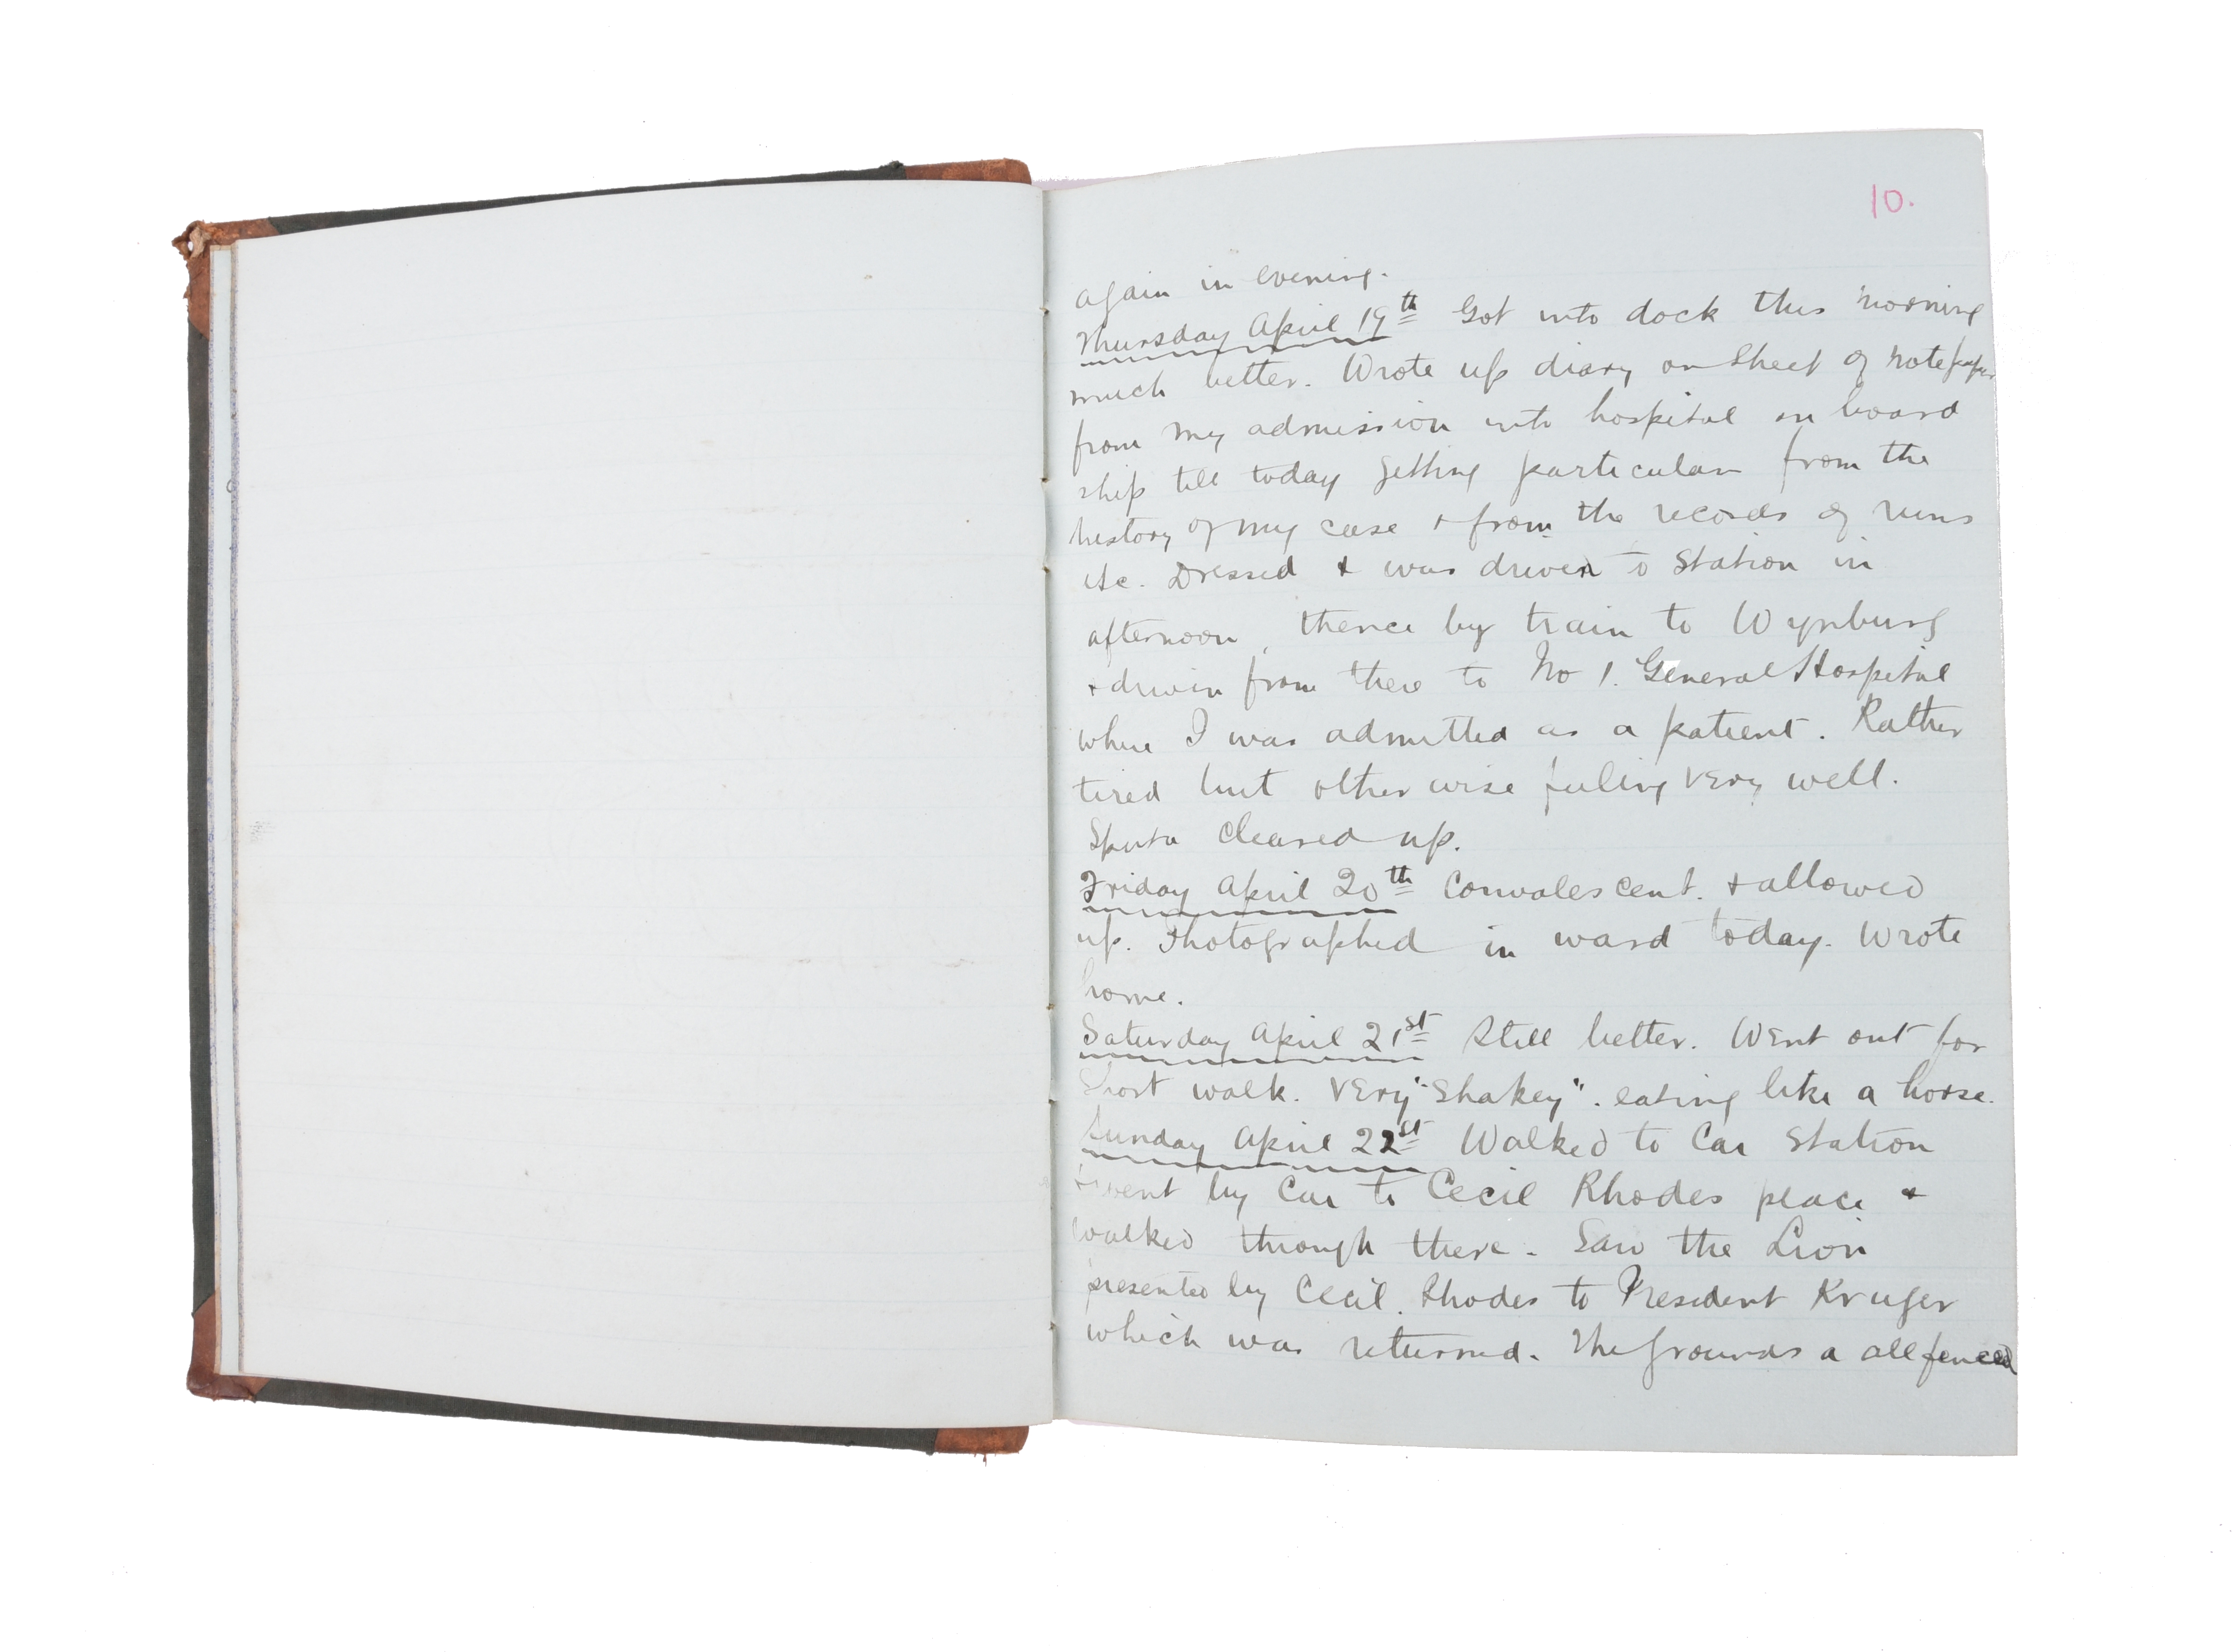 10.
again in evening.
Thursday April 19th Got into dock this morning
much better. Wrote up diary on sheet of notepaper
from my admission into hospital on board
ship till today getting particular from the
history of my case & from the records of runs
etc. Dressed & was driven to Station in
afternoon, thence by train to Wynburg
& driven from there to No 1. General Hospital
where I was admitted as a patient. Rather
tired but other wise feeling very well.
Sputa cleared up.
Friday April 20th Convalescent. & allowed
up. Photographed in ward today. Wrote
home.
Saturday April 21st Still better. Went out for
Short walk. Very "Shakey". eating like a horse.
Sunday April 22st Walked to Car Station
& went by Car to Cecil Rhodes place &
walked through there. Saw the Lion
presented by Cecil. Rhodes to President Kruger
which was returned. The grounds a all fenced